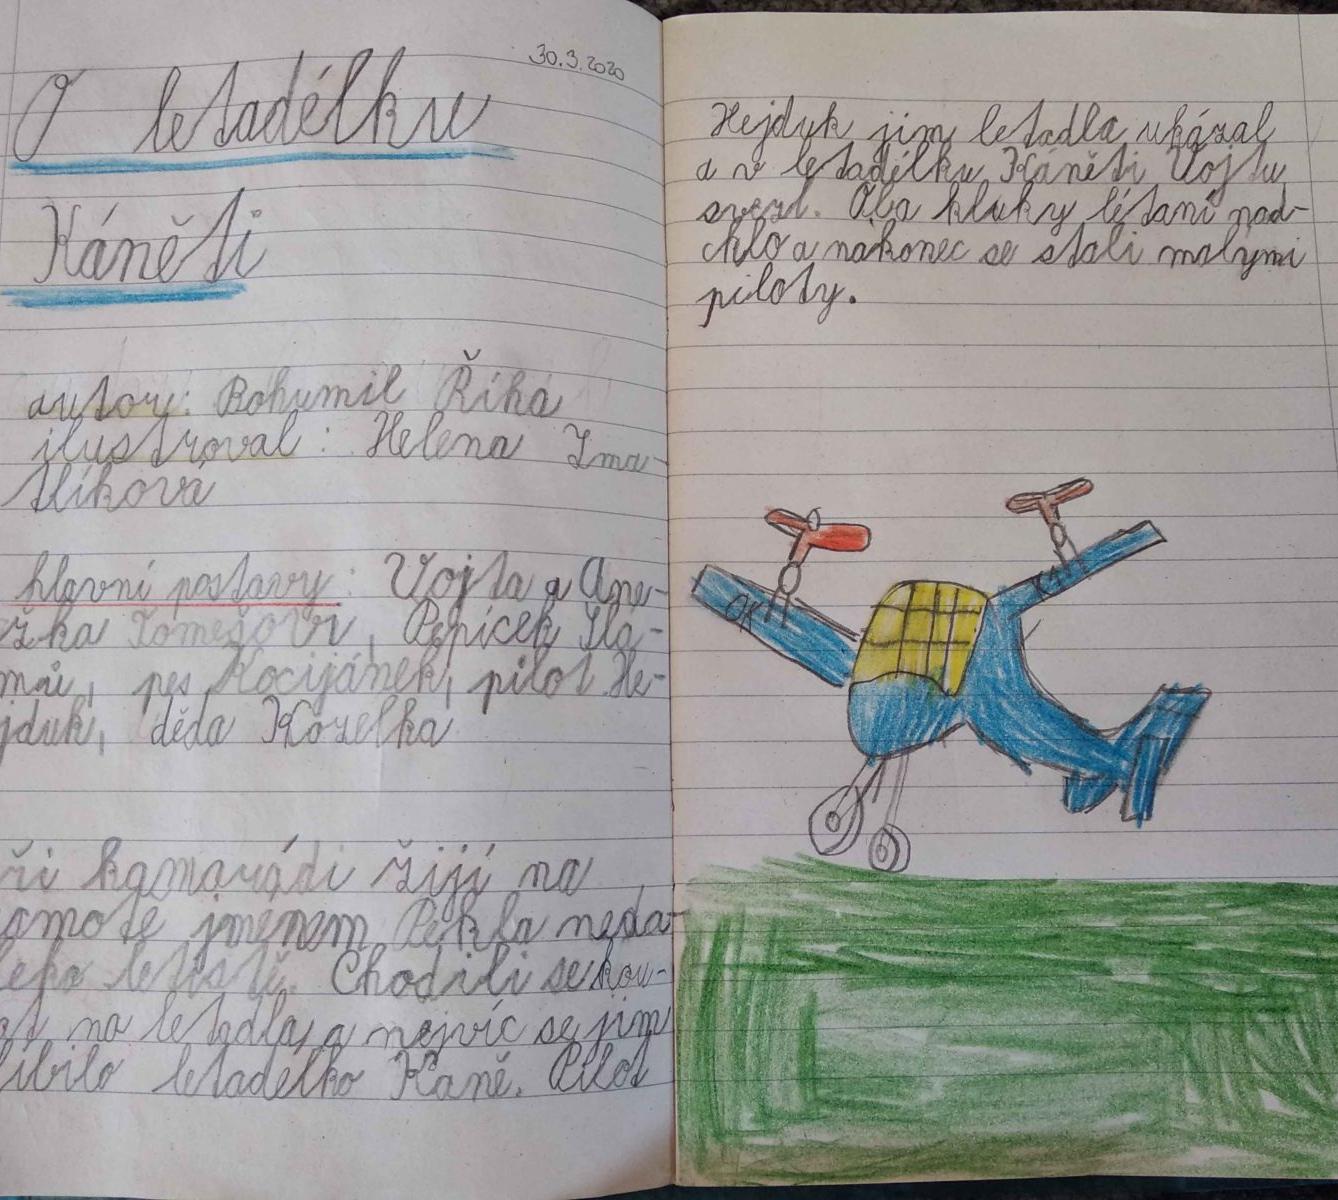 30.3.2020
O letadélku
Káněti
autor: Bohumil Říha
ilustroval: Helena Zma-
tlíková
hlavní postavy: Vojta a Ane-
žka Tomešovi, Pepíček Sla-
mů, pes Kocijánek, pilot He-
jduk, děda Kozelka
ři kamarádi žijí na
amotě jménem Pekla neda-
leko letiště. Chodili se kou-
at na letadla a nejvíc se jim
líbilo letadélko Káně. Pilot
Hejduk jim letadla ukázal
a v letadélku Káněti Vojtu
svezl. Oba kluky létaní nad-
chlo a nakonec se stali malými
piloty.
OK